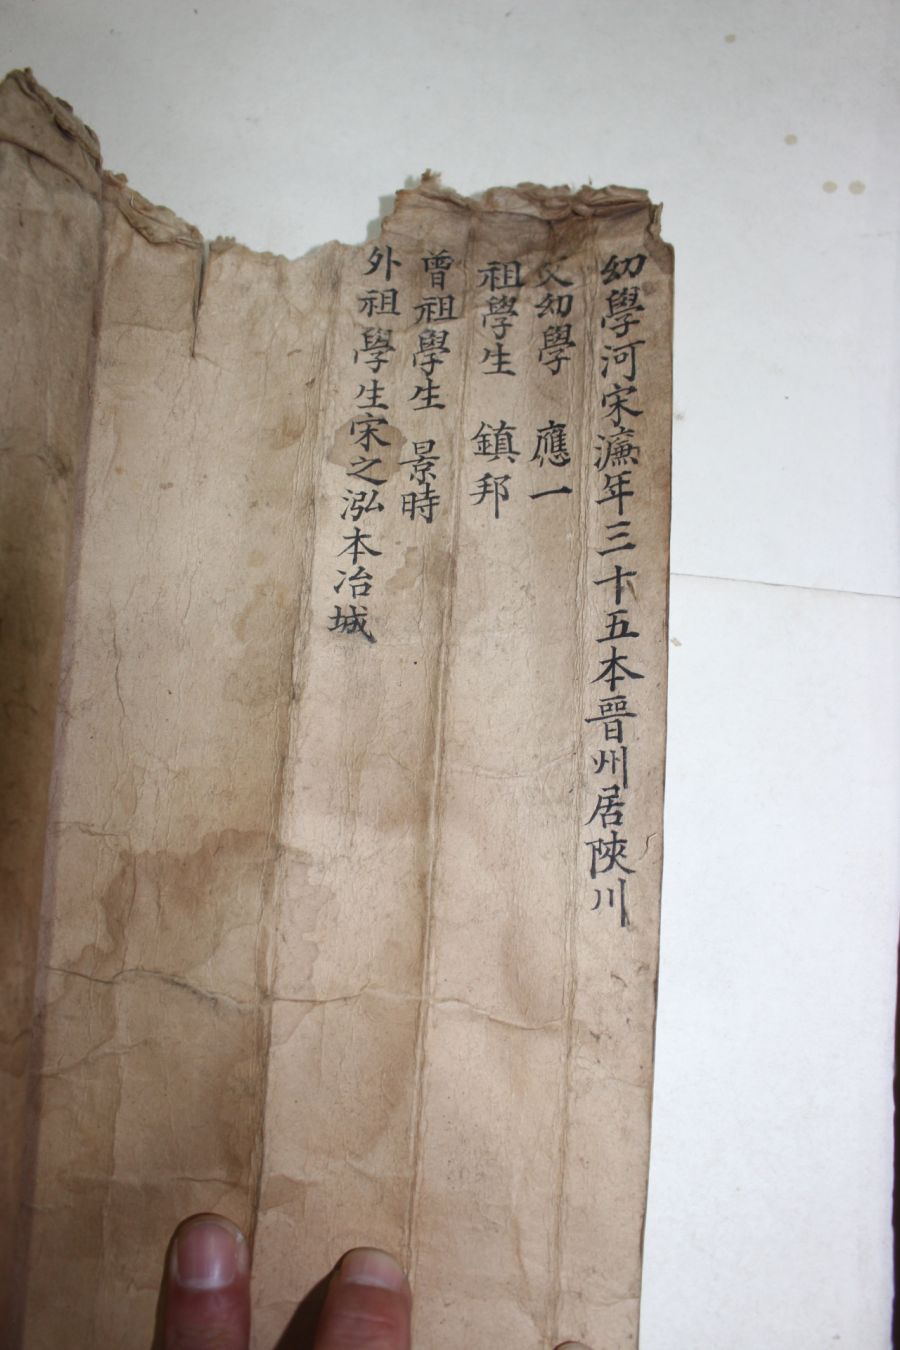 幼學河宋濂年三十五本晉州居陜川
父幼學 應一
祖學生 鎮邦
曾祖學生 景時
外祖學生宋之泓本冶城